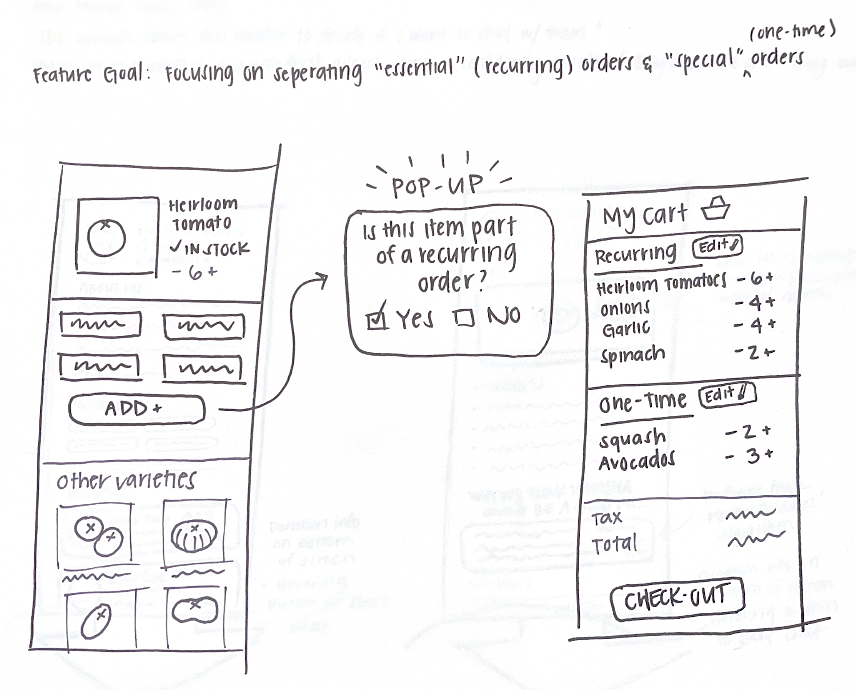 (one-time)
Feature Goal: Focusing on seperating "essential" (recurring) orders & "special" ^ orders
Heirloom
Tomato
✓ IN STOCK
- 6 +
ADD +
other varieties
POP-UP
Is this item part
of a recurring
order?
☑ Yes ☐ No
My cart
Recurring Edit
Heirloom Tomatoes - 6 +
onions - 4 +
Garlic - 4 +
spinach - 2 +
One-Time Edit
squash - 2 +
Avocados - 3 +
Tax
Total
CHECK-OUT